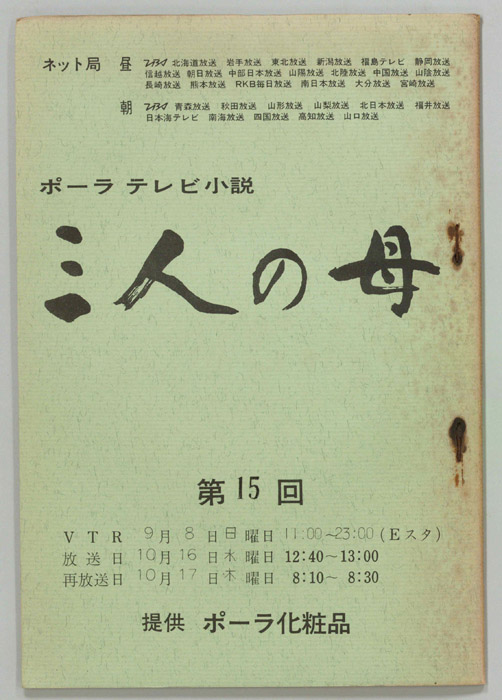 ネット局 昼 TBS 北海道放送 岩手放送 東北放送 新潟放送 福島テレビ 静岡放送
信越放送 朝日放送 中部日本放送 山陽放送 北陸放送 中国放送 山陰放送
長崎放送 熊本放送 RKB毎日放送 南日本放送 大分放送 宮崎放送
朝 TBS 青森放送 秋田放送 山形放送 山梨放送 北日本放送 福井放送
日本海テレビ 南海放送 四国放送 高知放送 山口放送
ポーラ テレビ小説
三人の母
第15回
VTR 9月8日日曜日 11:00~23:00 (Eスタ)
放送日 10月16日水曜日 12:40~13:00
再放送日 10月17日木曜日 8:10~8:30
提供 ポーラ化粧品